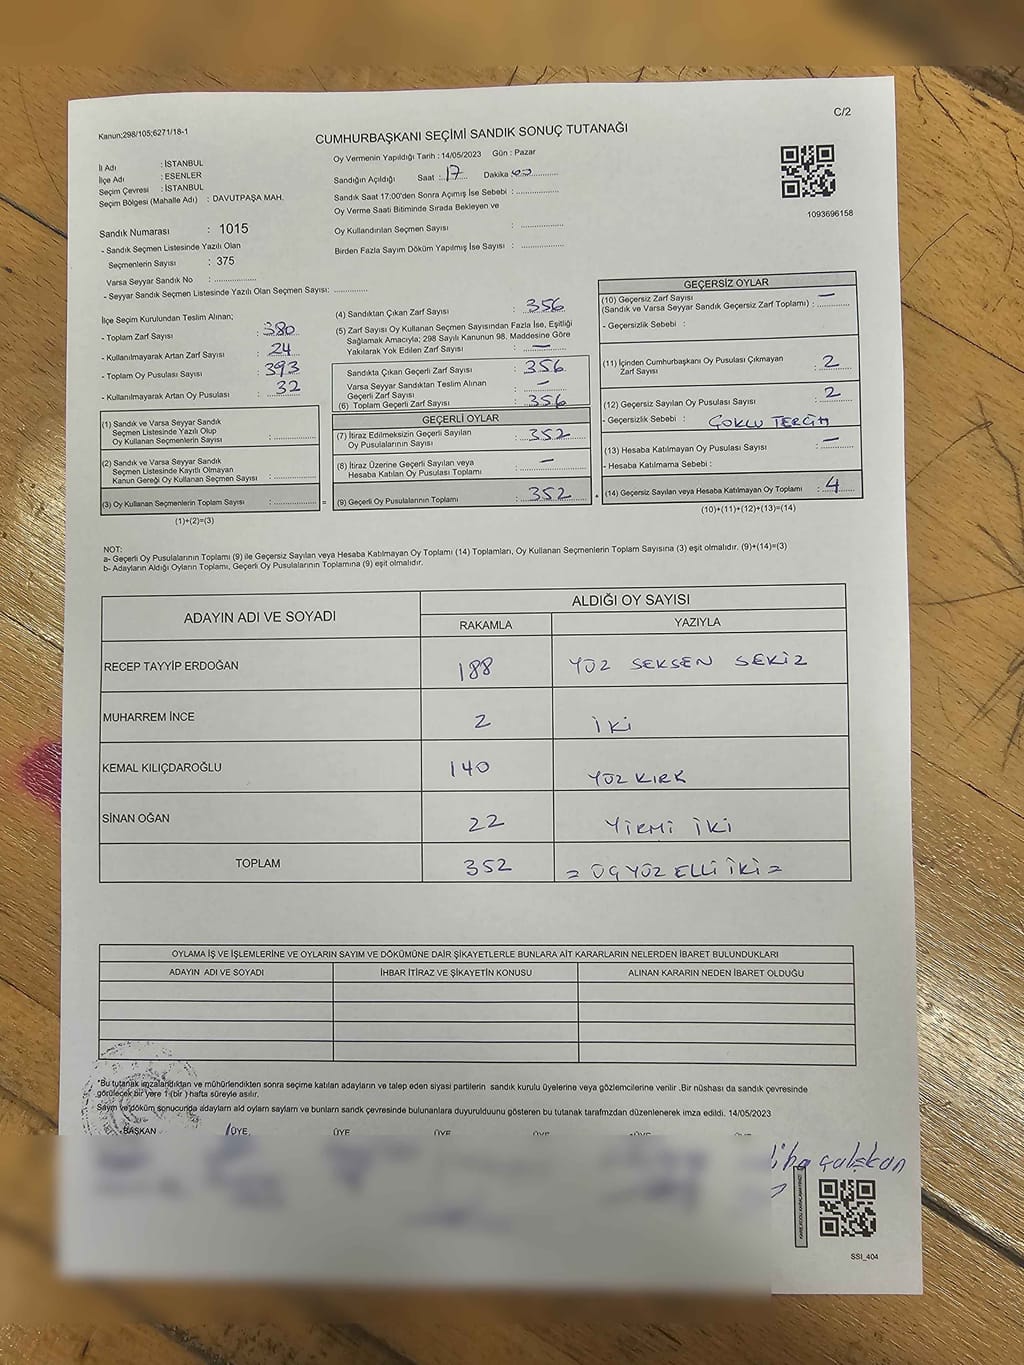 Kanun;298/105;6271/18-1
C/2
CUMHURBAŞKANI SEÇİMİ SANDIK SONUÇ TUTANAĞI
İl Adı : İSTANBUL
İlçe Adı : ESENLER
Seçim Çevresi : İSTANBUL
Seçim Bölgesi (Mahalle Adı) : DAVUTPAŞA MAH.
Sandık Numarası : 1015
- Sandık Seçmen Listesinde Yazılı Olan
Seçmenlerin Sayısı : 375
Varsa Seyyar Sandık No : ..............
- Seyyar Sandık Seçmen Listesinde Yazılı Olan Seçmen Sayısı: ............
Oy Vermenin Yapıldığı Tarih : 14/05/2023 Gün : Pazar
Sandığın Açıldığı Saat : 17 Dakika 00
Sandık Saat 17:00'den Sonra Açımış İse Sebebi : ..............
Oy Verme Saati Bitiminde Sırada Bekleyen ve
Oy Kullandırılan Seçmen Sayısı : ..............
Birden Fazla Sayım Döküm Yapılmış İse Sayısı : ..............
1093696158
İlçe Seçim Kurulundan Teslim Alınan;
- Toplam Zarf Sayısı : 380
- Kullanılmayarak Artan Zarf Sayısı : 24
- Toplam Oy Pusulası Sayısı : 393
- Kullanılmayarak Artan Oy Pusulası : 32
(1) Sandık ve Varsa Seyyar Sandık
Seçmen Listesinde Yazılı Olup
Oy Kullanan Seçmenlerin Sayısı : ............
(2) Sandık ve Varsa Seyyar Sandık
Seçmen Listesinde Kayıtlı Olmayan
Kanun Gereği Oy Kullanan Seçmen Sayısı : ............
(3) Oy Kullanan Seçmenlerin Toplam Sayısı : ............ =
(1)+(2)=(3)
(4) Sandıktan Çıkan Zarf Sayısı : 356
(5) Zarf Sayısı Oy Kullanan Seçmen Sayısından Fazla İse, Eşitliği
Sağlamak Amacıyla; 298 Sayılı Kanunun 98. Maddesine Göre
Yakılarak Yok Edilen Zarf Sayısı : —
Sandıkta Çıkan Geçerli Zarf Sayısı : 356
Varsa Seyyar Sandıktan Teslim Alınan
Geçerli Zarf Sayısı : —
(6) Toplam Geçerli Zarf Sayısı : 356
GEÇERLİ OYLAR
(7) İtiraz Edilmeksizin Geçerli Sayılan
Oy Pusulalarının Sayısı : 352
(8) İtiraz Üzerine Geçerli Sayılan veya
Hesaba Katılan Oy Pusulası Toplamı : —
(9) Geçerli Oy Pusulalarının Toplamı : 352 +
GEÇERSİZ OYLAR
(10) Geçersiz Zarf Sayısı
(Sandık ve Varsa Seyyar Sandık Geçersiz Zarf Toplamı) : —
- Geçersizlik Sebebi :
(11) İçinden Cumhurbaşkanı Oy Pusulası Çıkmayan
Zarf Sayısı : 2
(12) Geçersiz Sayılan Oy Pusulası Sayısı : 2
- Geçersizlik Sebebi : ÇOKLU TERCİH
(13) Hesaba Katılmayan Oy Pusulası Sayısı : —
- Hesaba Katılmama Sebebi :
(14) Geçersiz Sayılan veya Hesaba Katılmayan Oy Toplamı : 4
(10)+(11)+(12)+(13)=(14)
NOT:
a- Geçerli Oy Pusulalarının Toplamı (9) ile Geçersiz Sayılan veya Hesaba Katılmayan Oy Toplamı (14) Toplamları, Oy Kullanan Seçmenlerin Toplam Sayısına (3) eşit olmalıdır. (9)+(14)=(3)
b- Adayların Aldığı Oyların Toplamı, Geçerli Oy Pusulalarının Toplamına (9) eşit olmalıdır.
ADAYIN ADI VE SOYADI ALDIĞI OY SAYISI
RAKAMLA YAZIYLA
RECEP TAYYİP ERDOĞAN 188 YÜZ SEKSEN SEKİZ
MUHARREM İNCE 2 İKİ
KEMAL KILIÇDAROĞLU 140 YÜZ KIRK
SİNAN OĞAN 22 YİRMİ İKİ
TOPLAM 352 = ÜÇ YÜZ ELLİ İKİ =
OYLAMA İŞ VE İŞLEMLERİNE VE OYLARIN SAYIM VE DÖKÜMÜNE DAİR ŞİKAYETLERLE BUNLARA AİT KARARLARIN NELERDEN İBARET BULUNDUKLARI
ADAYIN ADI VE SOYADI İHBAR İTİRAZ VE ŞİKAYETİN KONUSU ALINAN KARARIN NEDEN İBARET OLDUĞU
*Bu tutanak imzalandıktan ve mühürlendikten sonra seçime katılan adayların ve talep eden siyasi partilerin sandık kurulu üyelerine veya gözlemcilerine verilir .Bir nüshası da sandık çevresinde
görülecek bir yere 1 (bir ) hafta süreyle asılır.
Sayım ve döküm sonucunda adayların ald oyların sayların ve bunların sandk çevresinde bulunanlara duyurulduunu gösteren bu tutanak tarafmzdan düzenlenerek imza edildi. 14/05/2023
BAŞKAN ÜYE ÜYE ÜYE ÜYE ÜYE
çalışkan
SSI_404